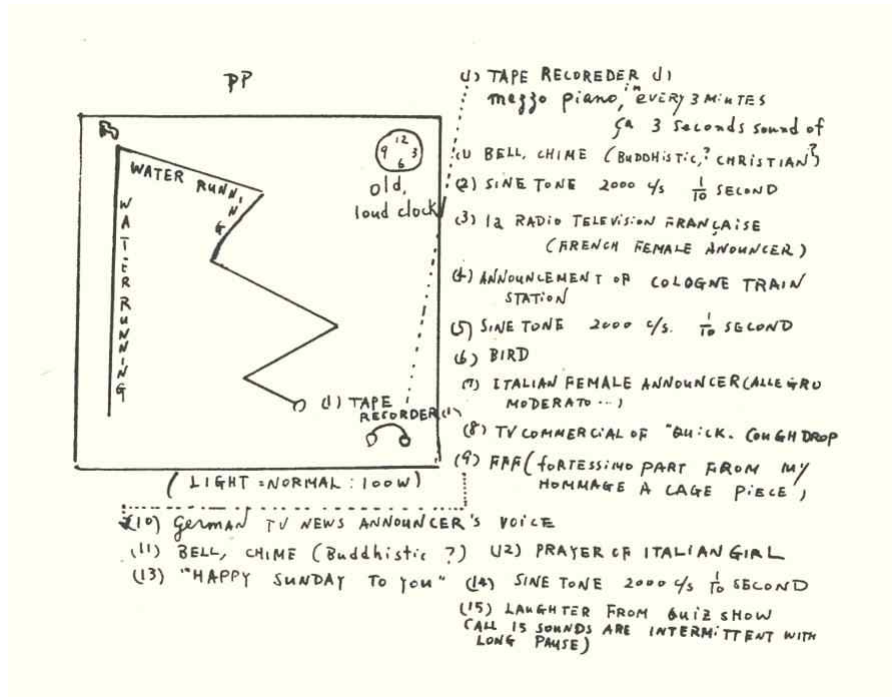 PP
WATER RUNNING
WATER RUNNING
12
9 3
6
old,
loud clock
(1) TAPE
RECORDER (1)
(LIGHT = NORMAL : 100W)
(1) TAPE RECOREDER (1)
mezzo piano, in EVERY 3 MINUTES
3 seconds sound of
(1) BELL, CHIME (BUDDHISTIC, ? CHRISTIAN?)
(2) SINE TONE 2000 c/s 1/10 SECOND
(3) la RADIO TELEVISION FRANÇAISE
(FRENCH FEMALE ANOUNCER)
(4) ANNOUNCEMENT OF COLOGNE TRAIN
STATION
(5) SINE TONE 2000 c/s. 1/10 SECOND
(6) BIRD
(7) ITALIAN FEMALE ANNOUNCER (ALLEGRO
MODERATO ...)
(8) TV COMMERCIAL OF "QUICK. COUGH DROP
(9) FFF (FORTESSIMO PART FROM MY
HOMMAGE A CAGE PIECE)
(10) GERMAN TV NEWS ANNOUNCER'S VOICE
(11) BELL, CHIME (Buddhistic ?) (12) PRAYER OF ITALIAN GIRL
(13) "HAPPY SUNDAY TO YOU" (14) SINE TONE 2000 c/s 1/10 SECOND
(15) LAUGHTER FROM QUIZ SHOW
(ALL 15 SOUNDS ARE INTERMITTENT WITH
LONG PAUSE)